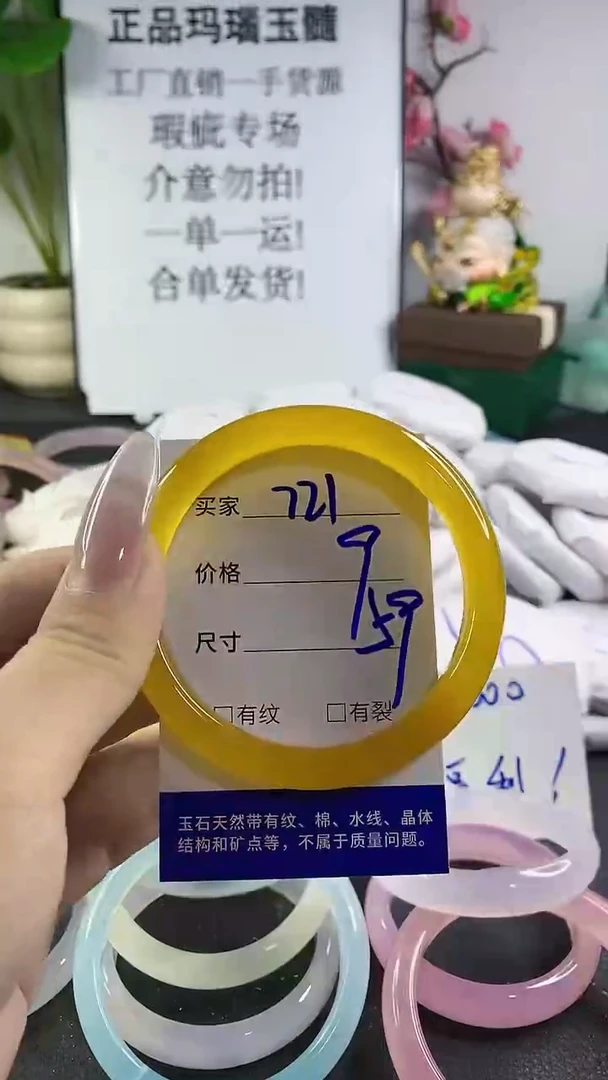 正品玛瑙玉髓
工厂直销一手货源
瑕疵专场
介意勿拍!
一单一运!
合单发货!
买家 721
价格 9
尺寸 59
□有纹 □有裂
玉石天然带有纹、棉、水线、晶体
结构和矿点等，不属于质量问题。